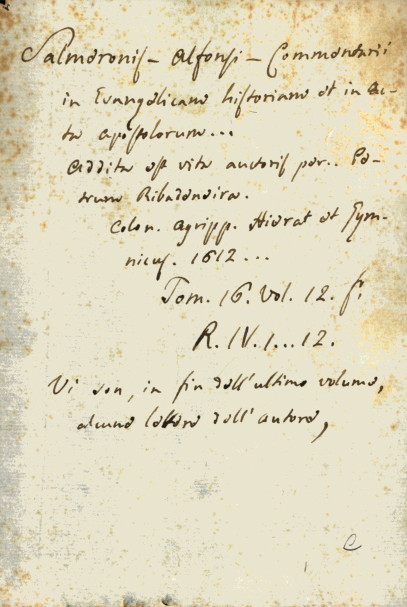 Salmeronis - Alfonsi - Commentarii
in Evangelicam historiam et in Ac-
ta apostolorum...
Addita est vita auctoris per.. Pe-
trum Ribadeneira.
Colon. Agripp. Hierat et Gym-
nicus. 1612...
Tom. 16. Vol. 12. f.
R. IV. 1...12.
Vi son, in fin dell'ultimo volume,
alcune lettere dell'autore,
C